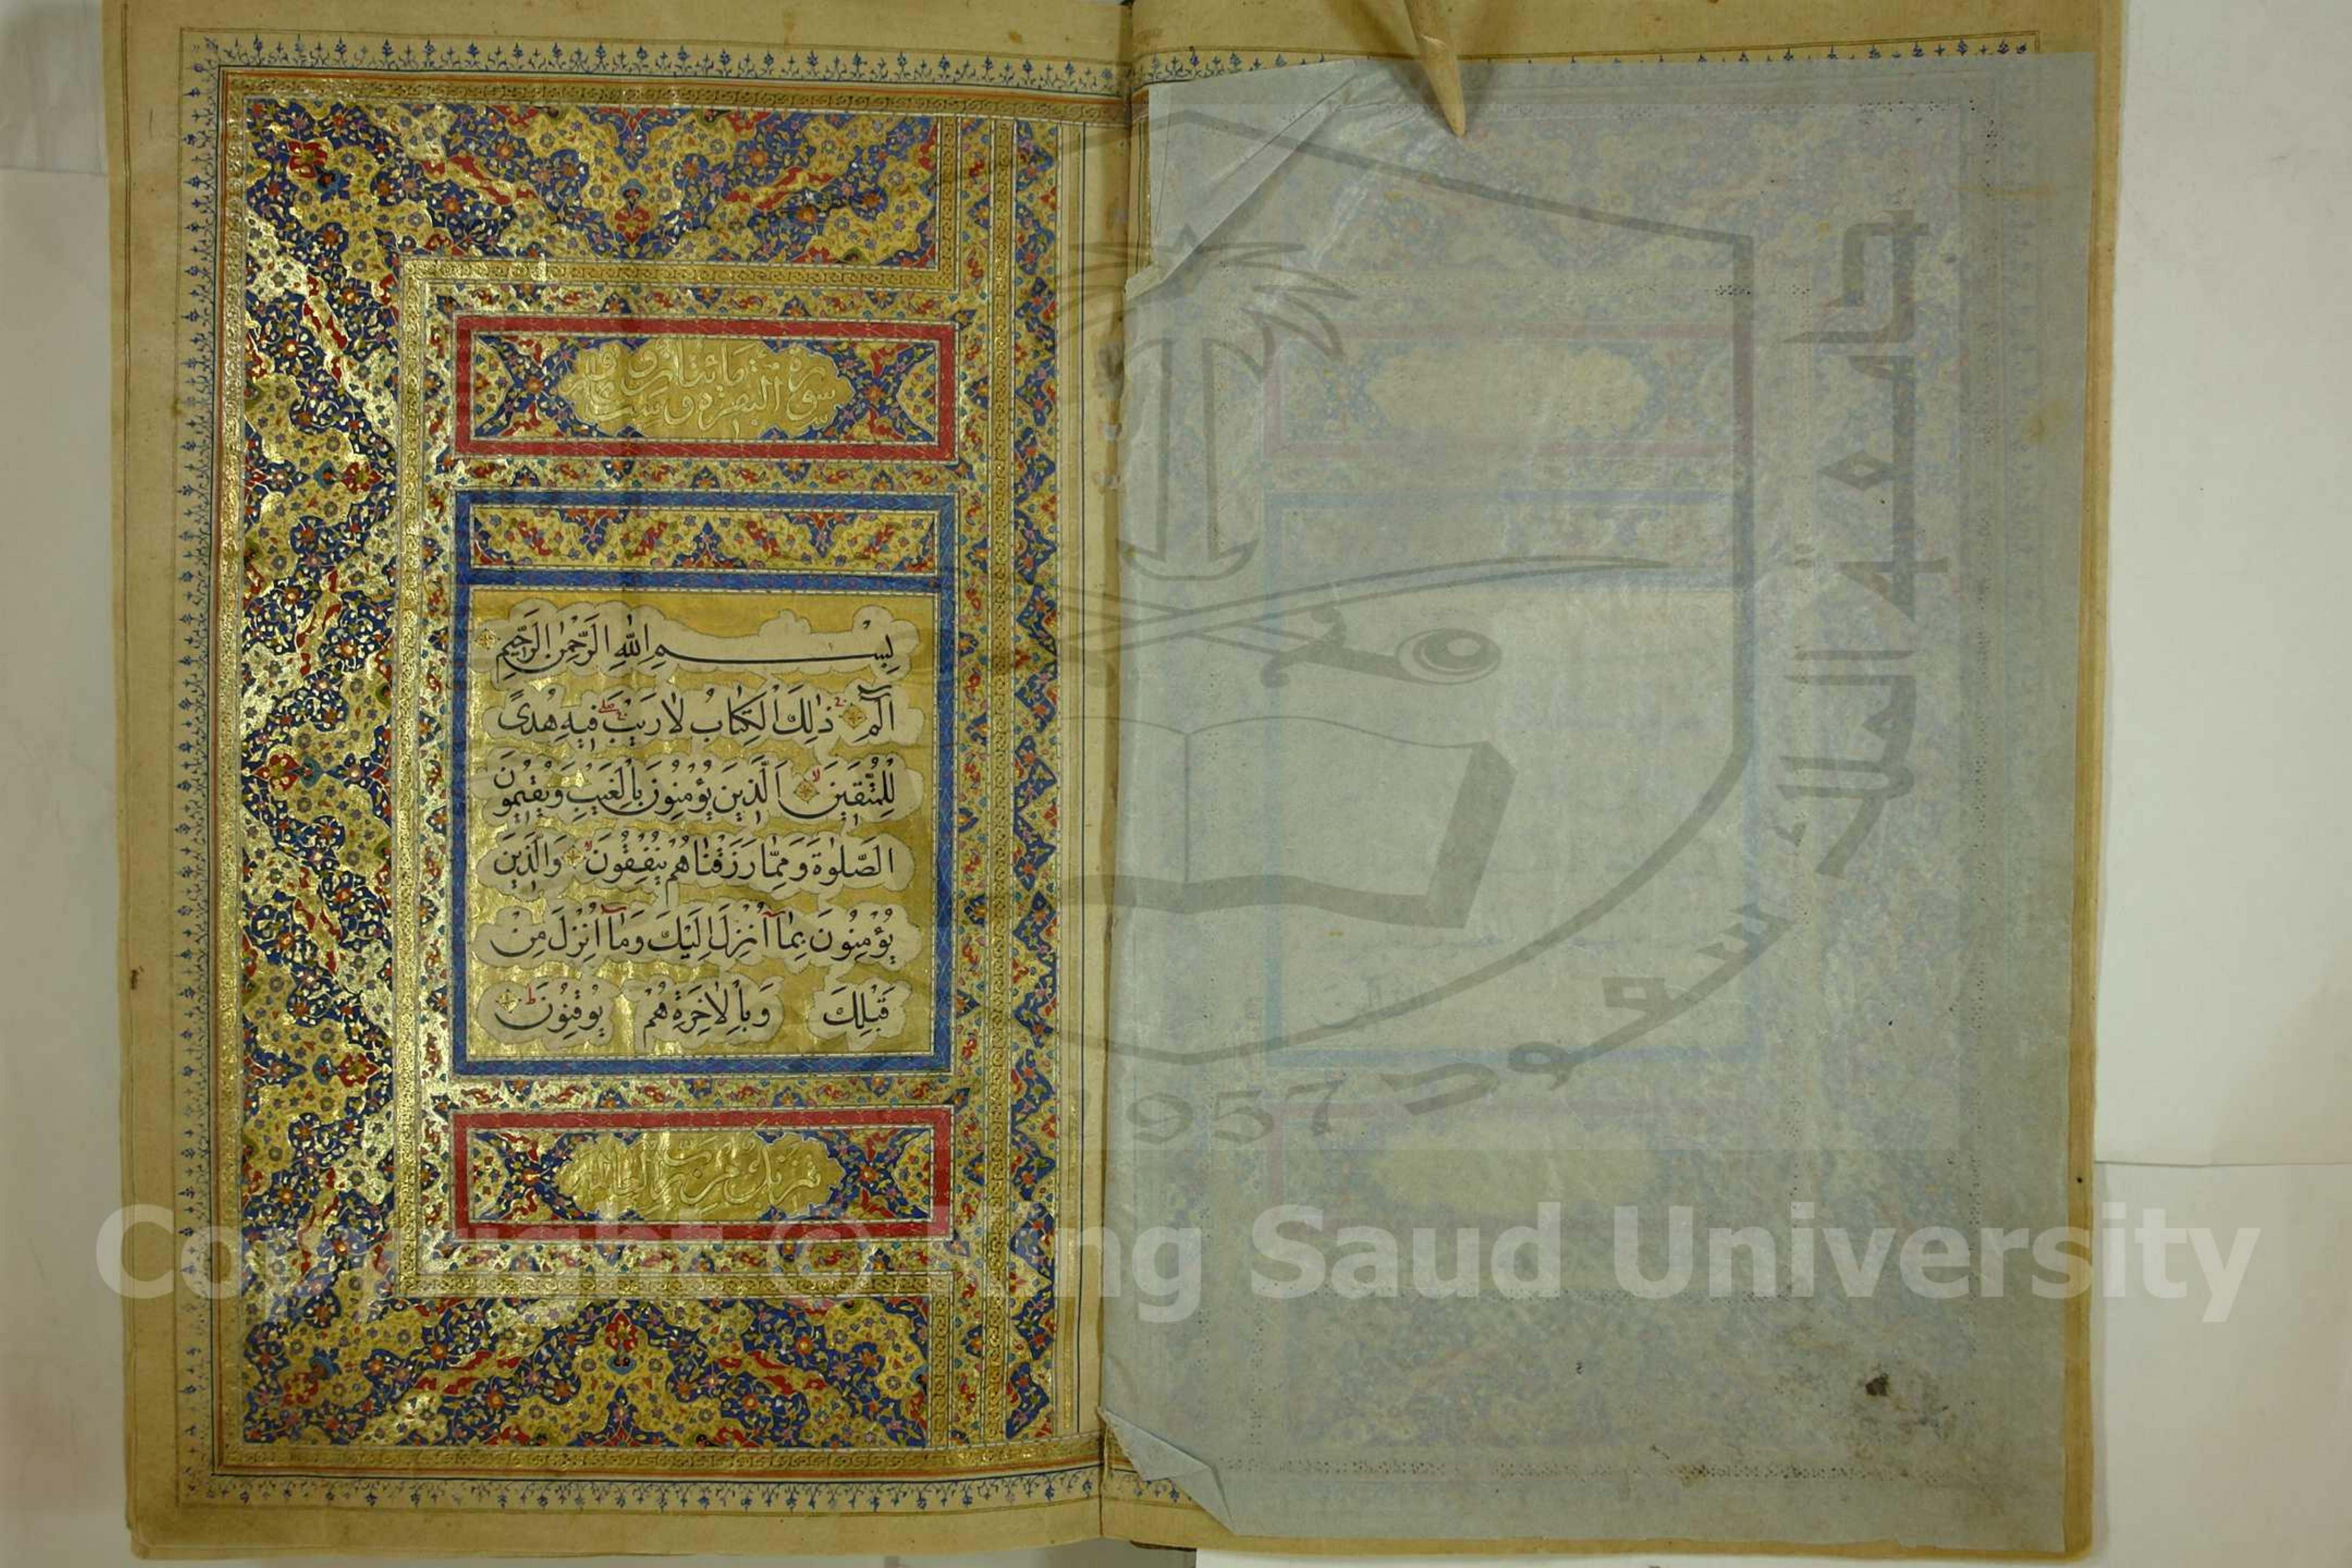 سورة البقرة مائتان و
بِسْمِ اللّٰهِ الرَّحْمٰنِ الرَّحٖيمِ
الٓمٓ ذٰلِكَ الْكِتَابُ لَا رَيْبَ فٖيهِ هُدًى
لِلْمُتَّقٖينَ اَلَّذٖينَ يُؤْمِنُونَ بِالْغَيْبِ وَيُقٖيمُونَ
الصَّلٰوةَ وَمِمَّا رَزَقْنَاهُمْ يُنْفِقُونَ وَالَّذٖينَ
يُؤْمِنُونَ بِمَٓا اُنْزِلَ اِلَيْكَ وَمَٓا اُنْزِلَ مِنْ
قَبْلِكَ وَبِالْاٰخِرَةِ هُمْ يُوقِنُونَ
تنزيل من رب العالمين
جامعة الملك سعود
1957
Copyright © King Saud University